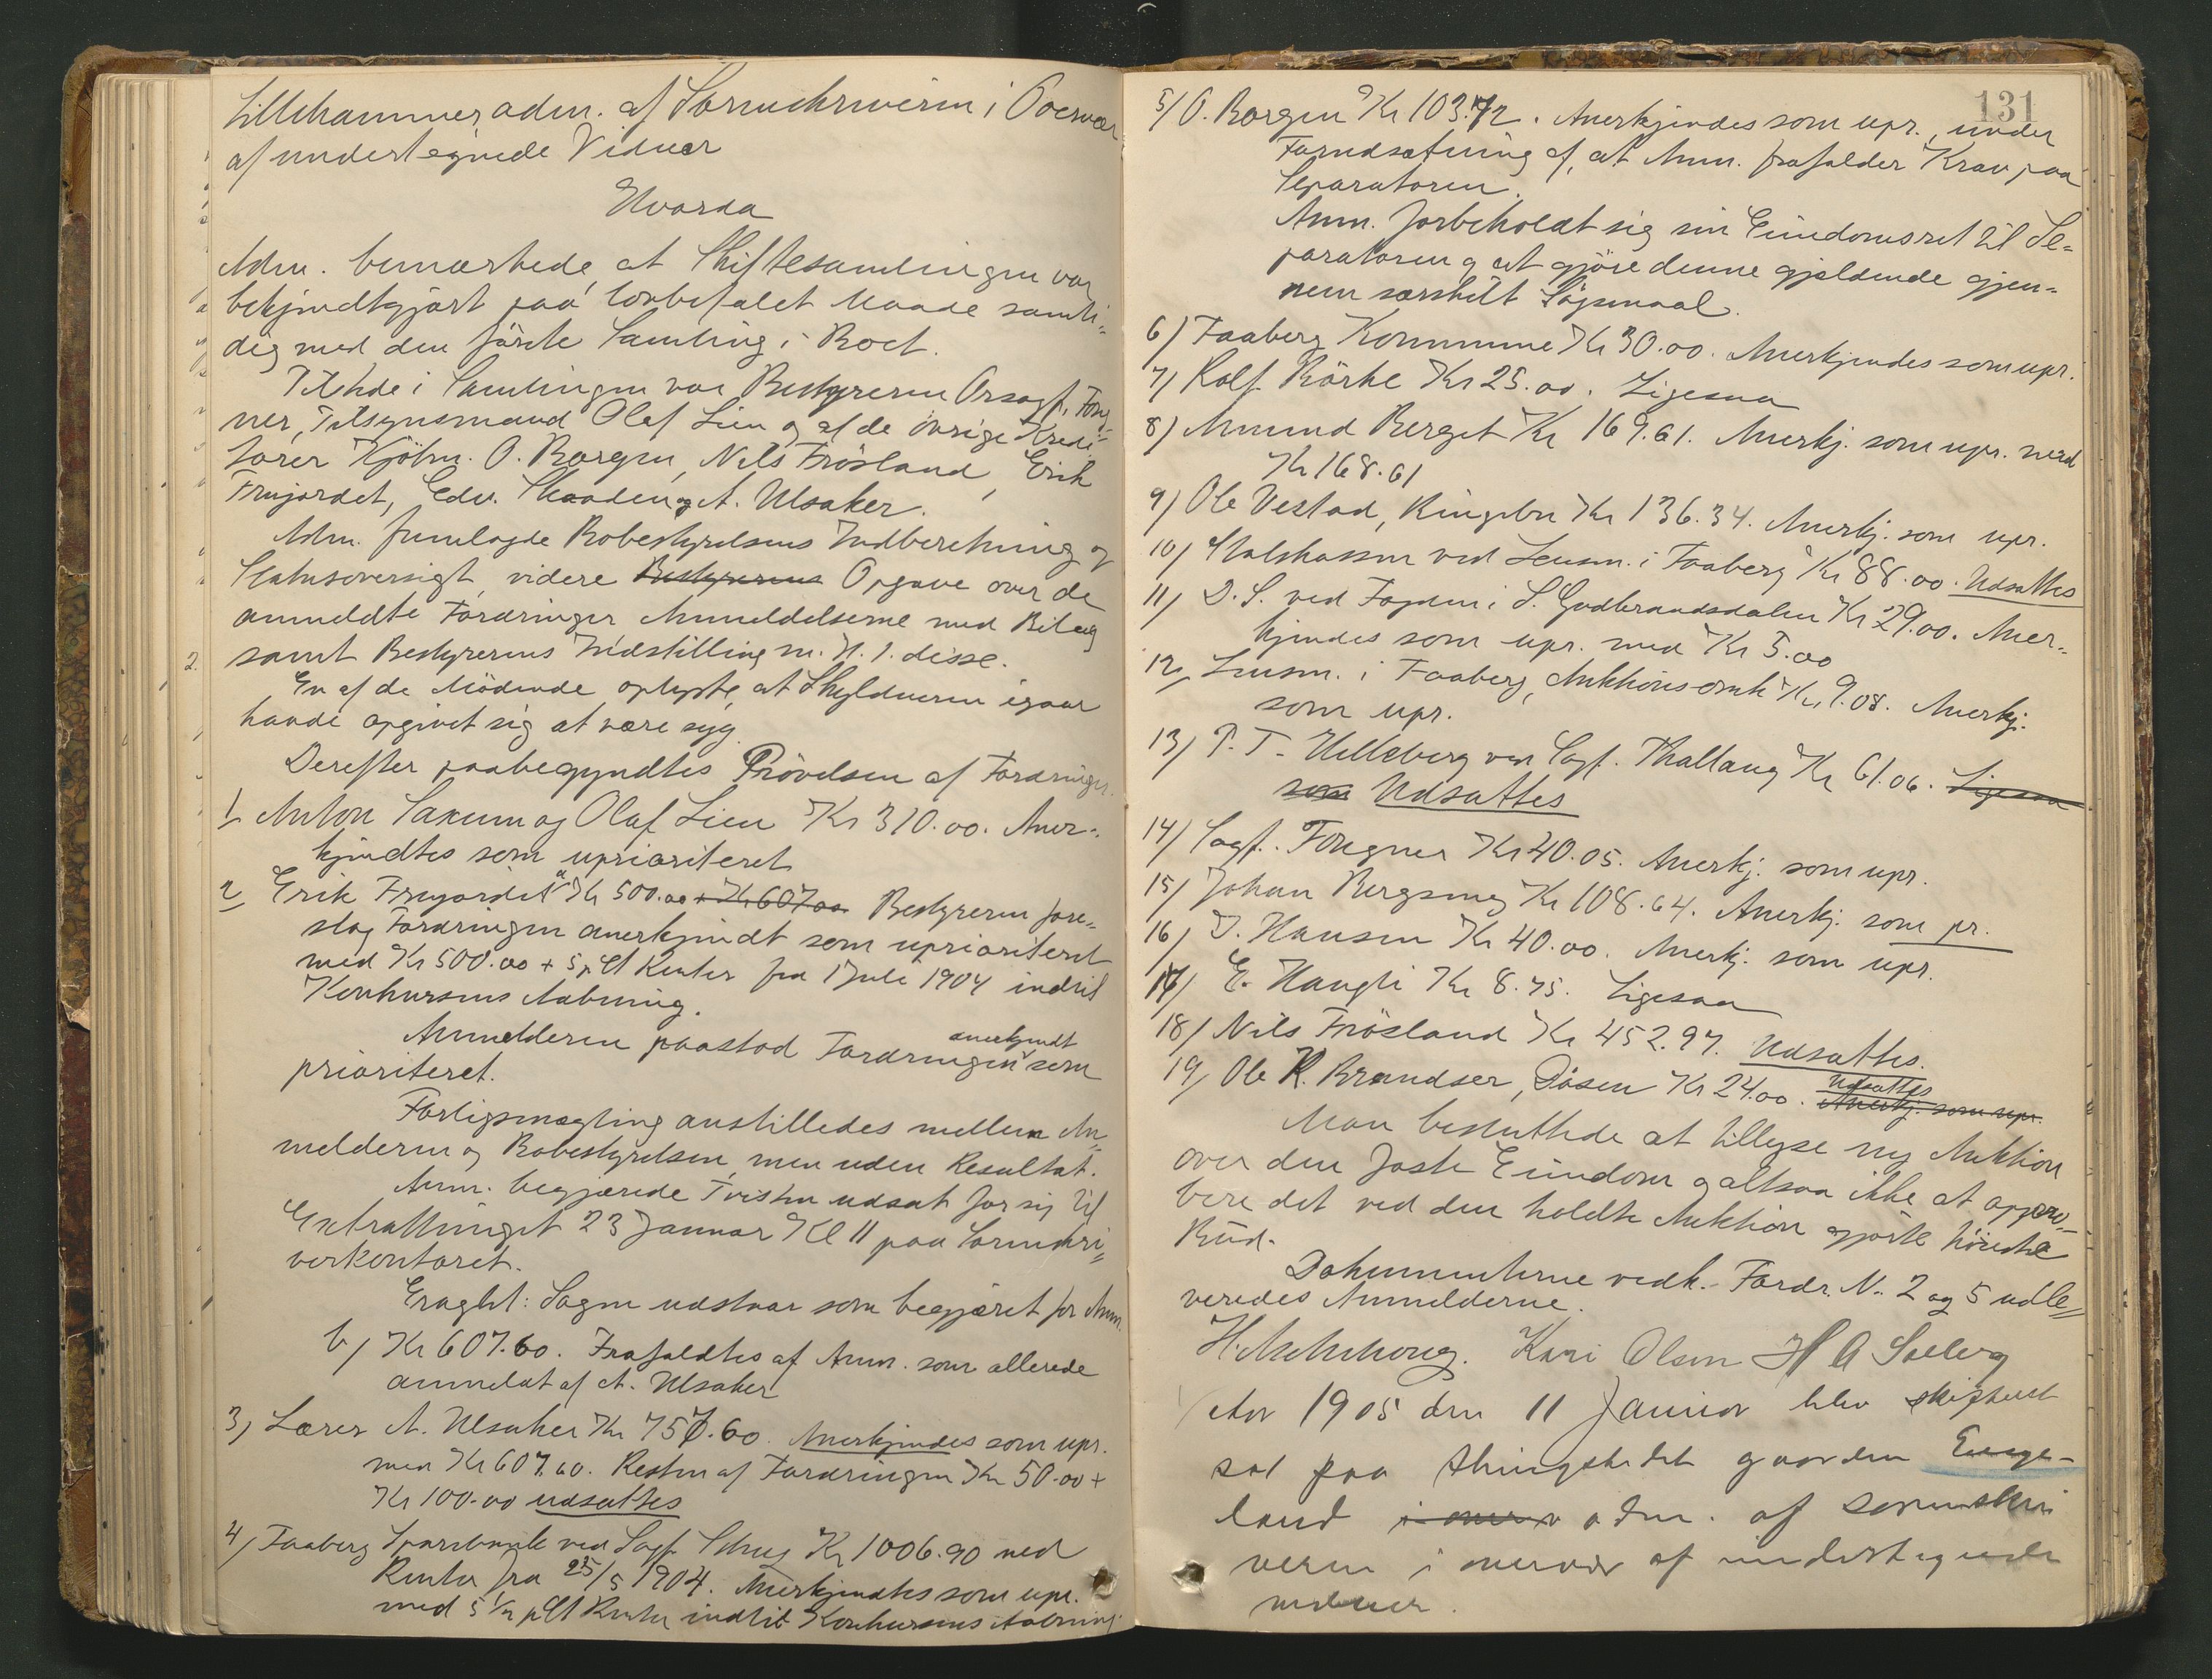 Lillehammer adm. af Sorenskriveren i Overvær
af undertegnede Vidner
Hvorda
Adm. bemærkede, at Skiftesamlingen var
bekjendtgjort paa lovbefalet Maade samti-
dig med den første Samling i Boet.
Tilstede i Samlingen var Bestyreren Orsagf. Foug-
ner, Tilsynsmand Olaf Lien og af de øvrige Kredi-
torer Kjöbm. O. Borgen, Nils Frösland, Erik
Frujordet, Edv. Skaaden og A. Ulsaker.
Adm. fremlagde Bobestyrelsens Indberetning og
Statusoversigt, videre Bestyrerens Opgave over de
anmeldte Fordringer Anmeldelserne med Bilag
samt Bestyrerens Indstilling m. H. t. disse.
En af de Mödende oplyste, at Skyldneren igaar
havde opgivet sig at være syg.
Derefter paabegyndtes Prövelsen af Fordringer.
1 Anton Saxum og Olaf Lien Kr 310.00. Aner-
kjendtes som uprioriteret
2 Erik Frujordet a Kr 500.00 + Kr 607.00 Bestyreren fore-
slog Fordringen anerkjendt som uprioriteret
med Kr 500.00 + 5 p Ct Renter fra 1 Juli 1904 indtil
Konkursens Aabning.
Anmelderen paastod Fordringen anerkjendt som
prioriteret.
Forligsmægling anstilledes mellem An-
melderen og Bobestyrelsen, men uden Resultat.
Anm. begjærede Tvisten udsat for sig til
Extrathinget 23 Januar Kl 11 paa Sorenskri-
verkontoret.
Eragtet: Sagen udstaar som begjæret for Anm.
b) Kr 607.60. Frafaldtes af Anm. som allerede
anmeldt af A. Ulsaker
3) Lærer A. Ulsaker Kr 757.60. Anerkjendes som upr.
med Kr 607.60. Resten af Fordringen Kr 50.00 +
Kr 100.00 udsattes
4) Faaberg Sparebank ved Sagf. Kr 1006.90 med
Renter fra 25/5 1904. Anerkjendtes som upr.
med 5 1/2 p Ct Renter indtil Konkursens Aabning
131
5) O. Borgen Kr 103.72. Anerkjendes som upr., under
Forudsætning af, at Anm. frafalder Krav paa
Separatoren.
Anm. forbeholdt sig sin Eiendomsret til Se-
paratoren og at gjöre denne gjeldende gjen-
nem særskilt Sögsmaal.
6) Faaberg Kommune Kr 30.00. Anerkjendes som upr.
7) Rolf Börke Kr 25.00. Ligesaa
8) Amund Berget Kr 169.61. Anerkj. som upr. med
Kr 168.61
9) Ole Vestad, Ringebu Kr 136.34. Anerkj. som upr.
10) Statskassen ved Lensm. i Faaberg Kr 88.00. Udsattes
11) D. S. ved Fogden i S. Gudbrandsdalen Kr 29.00. Aner-
kjendes som upr. med Kr 5.00
12) Lensm. i Faaberg, Auktionsomk. Kr 9.08. Anerkj.
som upr.
13) P. T. Hilleberg ved Sagf. Thallaug Kr 61.06. Ligesaa
som Udsattes
14) Sagf. Fougner Kr 40.05. Anerkj. som upr.
15) Johan Bergseng Kr 108.64. Anerkj. som pr.
16) J. Hansen Kr 40.00. Anerkj. som upr.
17) E. Haugli Kr 8.75. Ligesaa
18) Nils Frösland Kr 452.97. Udsattes.
19) Ole K. Brandser, Dösen Kr 24.00. Anerkj. som upr. Udsattes
Man besluttede at tillyse ny Auktion
over den faste Eiendom og altsaa ikke at appro-
bere det ved den holdte Auktion gjorte höieste
Bud.
Dokumenterne vedk. Fordr. N. 2 og 5 udle-
veredes Anmelderne.
Kari Olsen H A Solberg
Aar 1905 den 11 Januar blev skifteret
sat paa thingstedet gaarden Enge-
land i over adm. af sorenskri
veren i overvær af undertegnede
vidner.